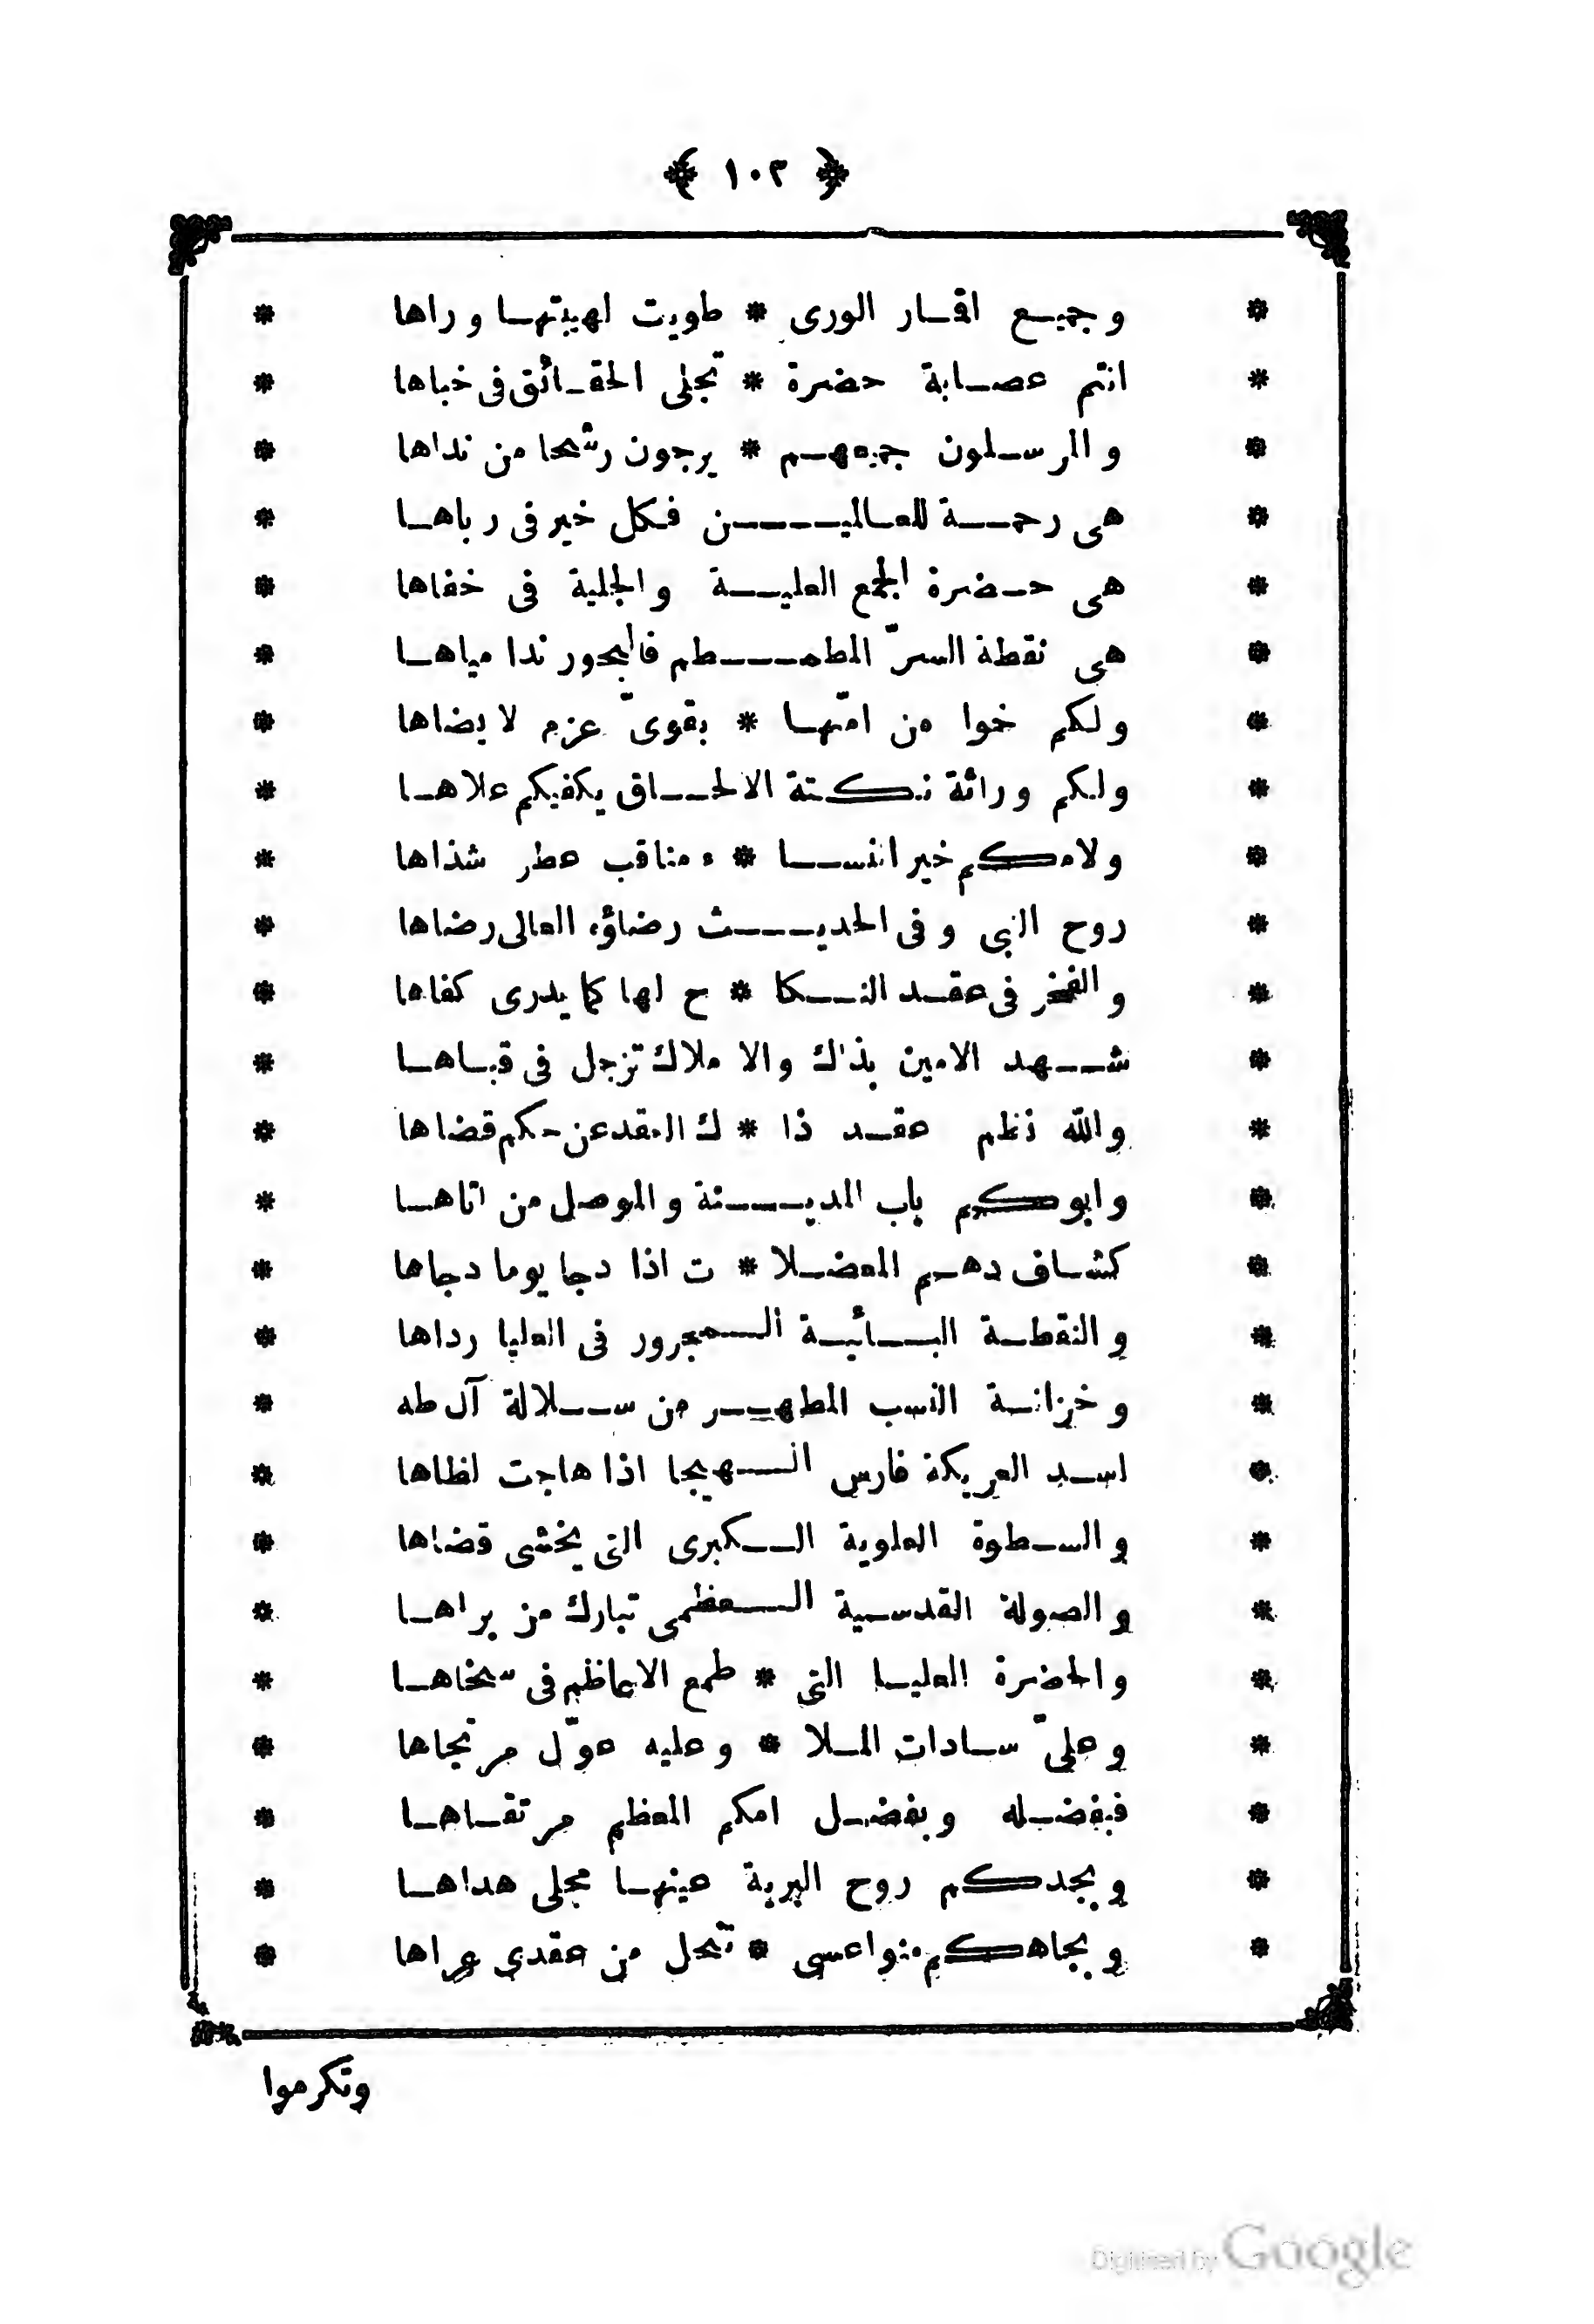 ﴿ ١٠٢ ﴾
* وجميع اقمار الورى * طويت لهيبتها وراها *
* انتم عصابة حضرة * تجلى الحقائق فى خباها *
* والرسلون جميعهم * يرجون رشحا من نداها *
* هى رحمة للعالمين فكل خير فى رباها *
* هى حضرة الجمع العلية والجلية فى خفاها *
* هى نقطة السرّ المطمطم فالبحور ندا مياها *
* ولكم خوا من امّتها * بقوىّ عزم لا يضاها *
* ولكم وراثة نكتة الالحاق يكفيكم علاها *
* ولامكم خير النسا * ء مناقب عطر شذاها *
* روح النبى وفى الحديث رضاؤه العالى رضاها *
* والفخر فى عقد النكا * ح لها كما يدرى كفاها *
* شهد الامين بذاك والا ملاك تزجل فى قباها *
* والله نظم عقد ذا * ك العقد عن حكم قضاها *
* وابوكم باب المدينة والموصل من اتاها *
* كشاف دهم المعضلا * ت اذا دجا يوما دجاها *
* والنقطة البائية المجرور فى العليا رداها *
* وخزانة النسب المطهر من سلالة آل طه *
* اسد العريكة فارس الهيجا اذا هاجت لظاها *
* والسطوة العلوية الكبرى التى يخشى قضاها *
* والصولة القدسية العظمى تبارك من براها *
* والحضرة العليا التى * طمع الاعاظم فى سخاها *
* وعلىّ سادات الملا * وعليه عوّل مرتجاها *
* فبفضله وبفضل امكم المعظم مرتقاها *
* وبجدكم روح البرية عينها مجلى هداها *
* وبجاهكم منوا عسى * تنحل من عقدى عراها *
وتكرموا
Digitized by Google